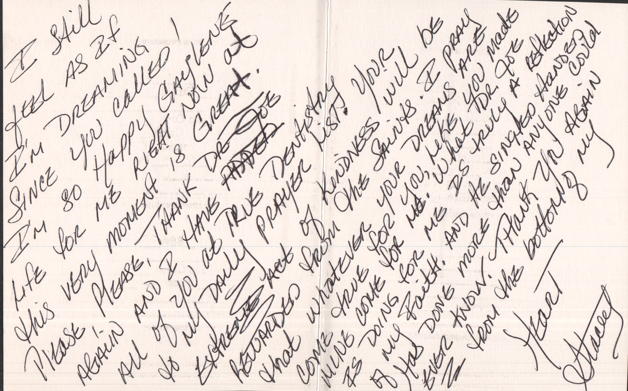 I Still
feel AS If
I'm DREAMING
SINCE YOU CALLED!
I'm SO HAPPY GAYLENE
LIFE for ME RIGHT NOW at
this VERY MOMENT IS GREAT.
PLEASE PLEASE, THANK DR JOE
AGAIN AND I HAVE ADDED
ALL of YOU at TRUE DENTISTRY
to my DAILY PRAYER LIST. YOUR
EXTREME ACT of KINDNESS will BE
REWARDED from the SAINTS. I PRAY
that WHATEVER YOUR DREAMS ARE
COME TRUE for YOU, LIKE YOU MADE
MINE COME for ME. What DR JOE
IS DOING for ME IS truly A REFLECTION
of my Faith. AND HE SINGLED HANDED
HAS DONE MORE thAN ANYONE COULD
EVER KNOW. THANK YOU AGAIN
from the bottom of my
HEART
Stacey